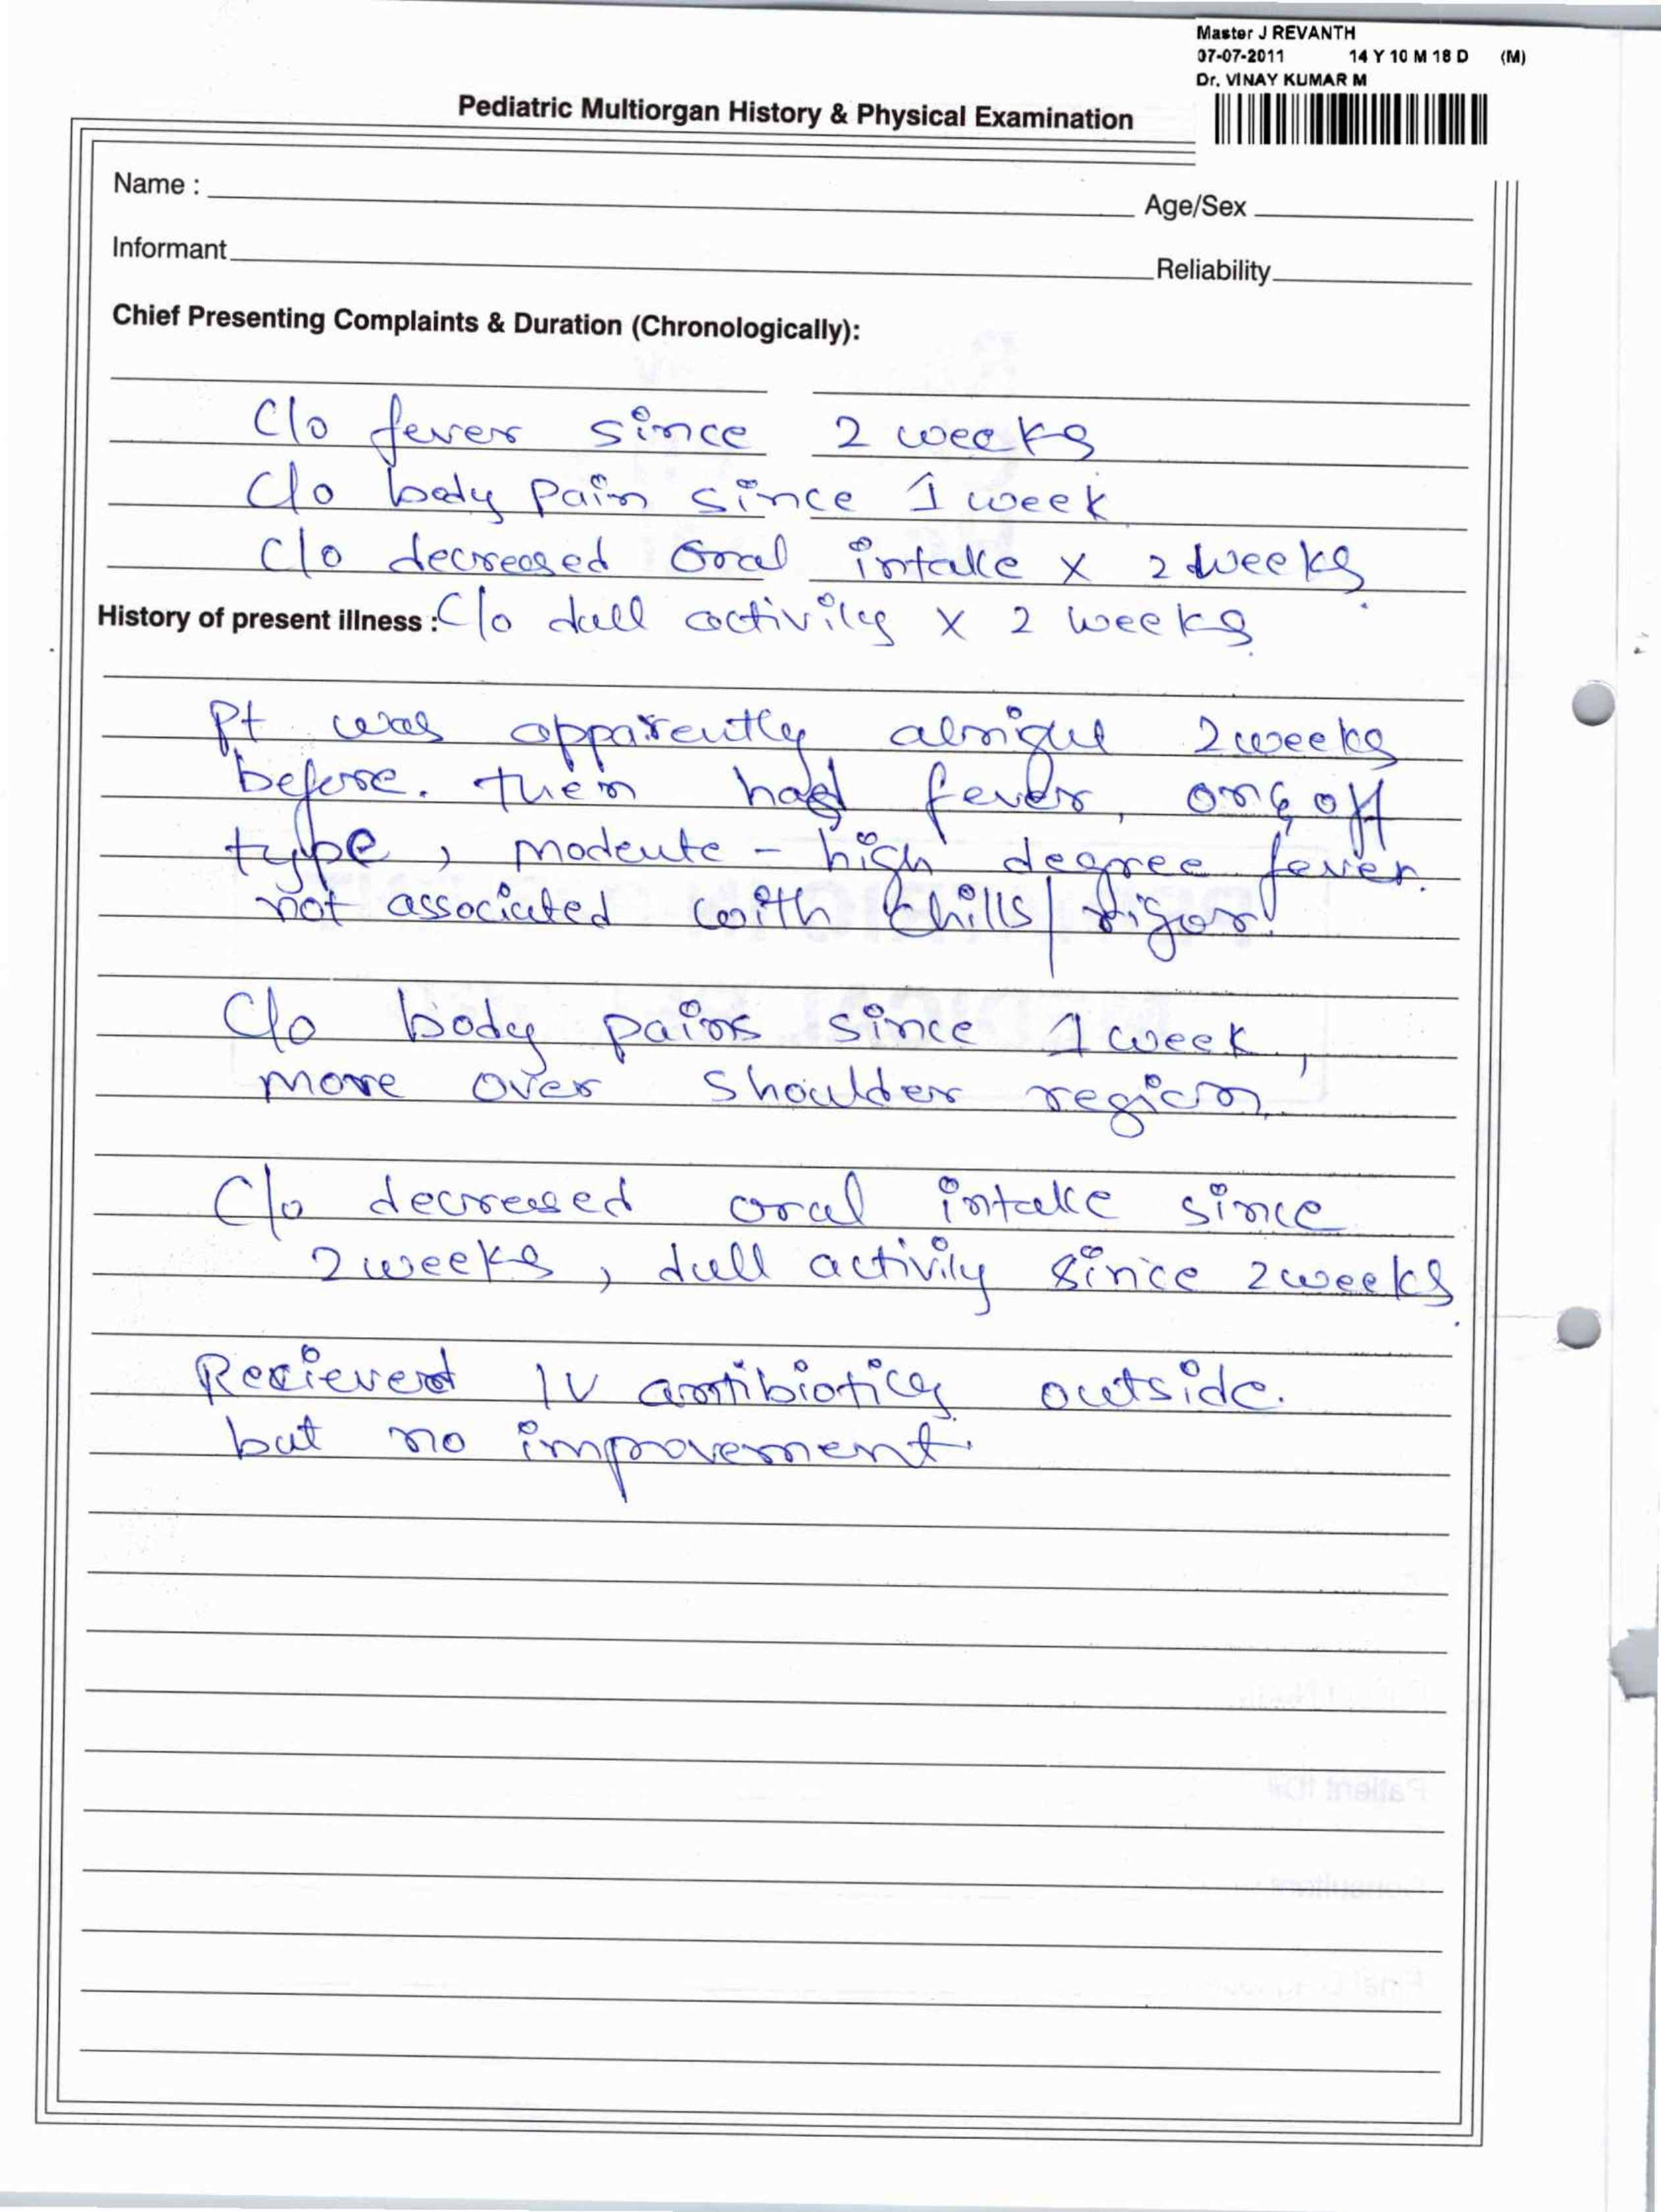 Master J REVANTH
07-07-2011 14 Y 10 M 18 D (M)
Dr. VINAY KUMAR M
Pediatric Multiorgan History & Physical Examination
Name :
Age/Sex
Informant
Reliability
Chief Presenting Complaints & Duration (Chronologically):
C/o fever since 2 weeks
C/o body pain since 1 week
C/o decreased oral intake x 2 weeks
History of present illness : C/o dull activity x 2 weeks
Pt was apparently alright 2 weeks
before. then had fever, on & off
type, moderate - high degree fever.
not associated with chills/rigor.
C/o body pains since 1 week,
more over shoulder region
C/o decreased oral intake since
2 weeks, dull activity since 2 weeks.
Recieved IV antibiotics outside.
but no improvement.
Patient ID#